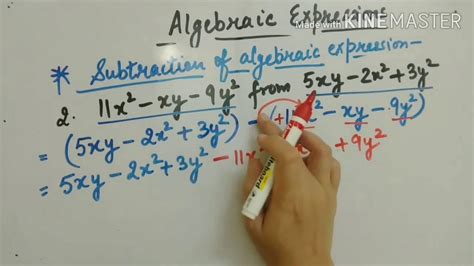 Algebraic Expression
Made with KINEMASTER
* Subtraction of algebraic expression-
2. 11x² - xy - 9y² from 5xy - 2x² + 3y²
= (5xy - 2x² + 3y²) - (+11x² - xy - 9y²)
= 5xy - 2x² + 3y² - 11x² + 9y²